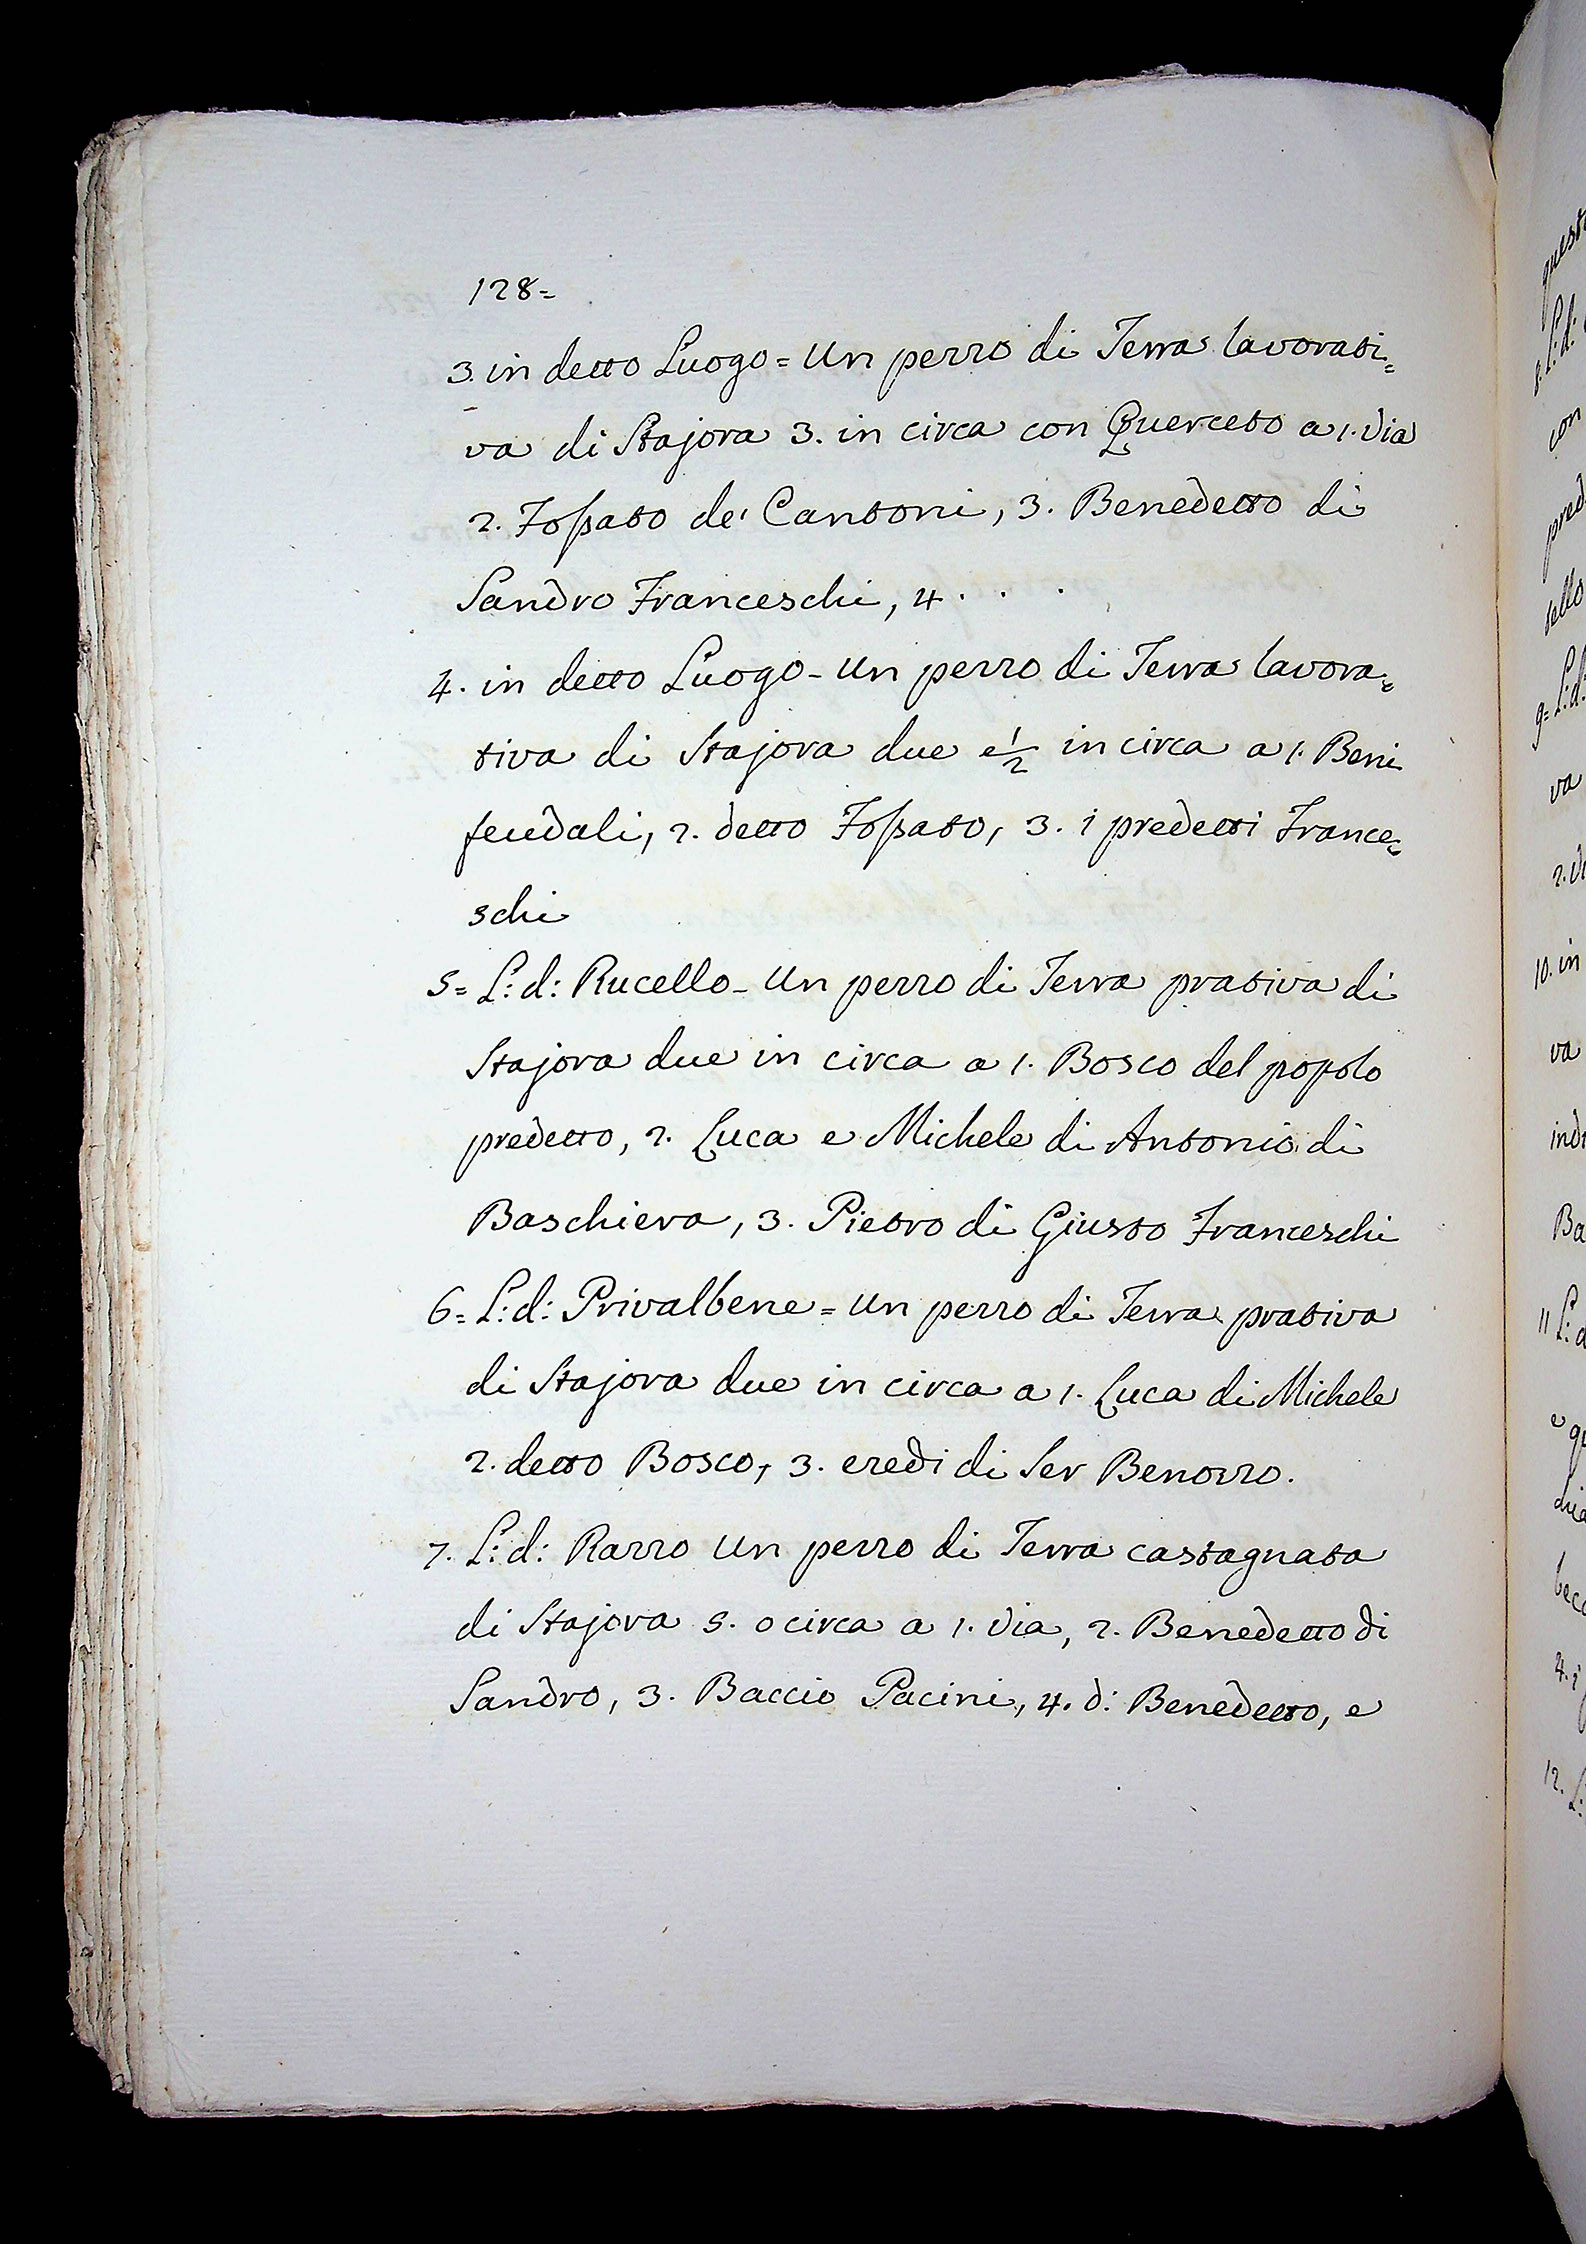 128=
3. in detto Luogo = Un pezzo di Terra lavorati=
va di Stajora 3. in circa con Querceto a 1. Via
2. Fossato de' Cantoni, 3. Benedetto di
Sandro Franceschi, 4 . . .
4. in detto Luogo - Un pezzo di Terra lavora=
tiva di Stajora due e 1/2 in circa a 1. Beni
feudali, 2. detto Fossato, 3. i predetti France=
schi
5= L: d: Rucello - Un pezzo di Terra prativa di
Stajora due in circa a 1. Bosco del popolo
predetto, 2. Luca e Michele di Antonio di
Baschiera, 3. Pietro di Giusto Franceschi
6= L: d: Privalbene = Un pezzo di Terra prativa
di Stajora due in circa a 1. Luca di Michele
2. detto Bosco, 3. eredi di Ser Benozzo.
7. L: d: Razzo Un pezzo di Terra castagnata
di Stajora 5. o circa a 1. Via, 2. Benedetto di
Sandro, 3. Baccio Pacini, 4. d: Benedetto, e